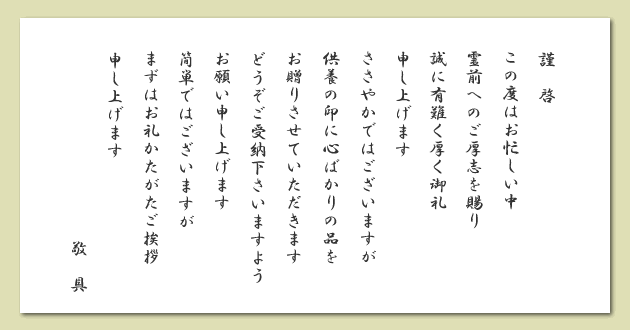 謹啓
この度はお忙しい中
霊前へのご厚志を賜り
誠に有難く厚く御礼
申し上げます
ささやかではございますが
供養の印に心ばかりの品を
お贈りさせていただきます
どうぞご受納下さいますよう
お願い申し上げます
簡単ではございますが
まずはお礼かたがたご挨拶
申し上げます
敬具